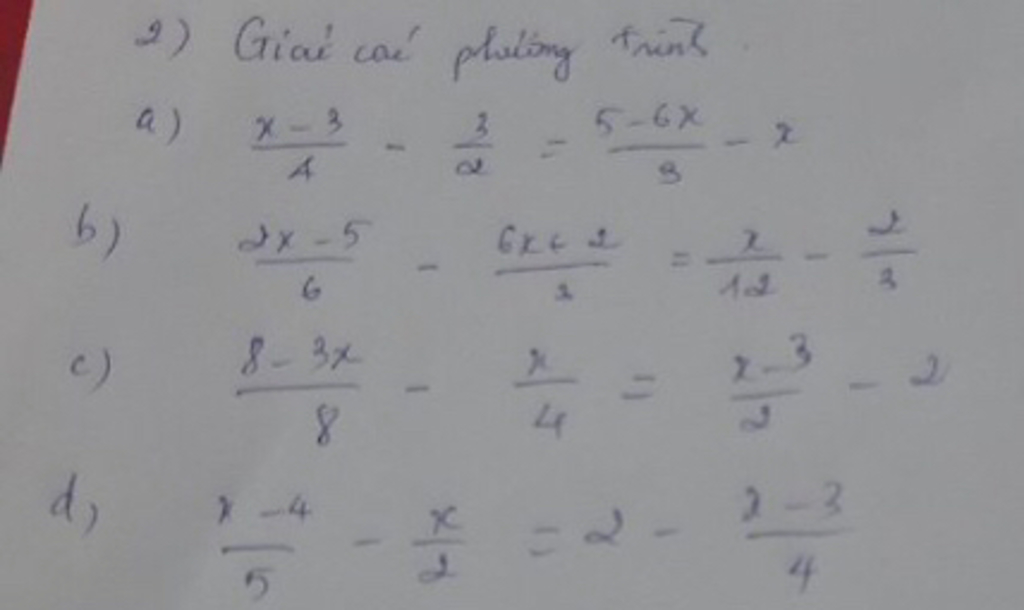 2) Giải các phương trình.
a) (x - 3)/4 - 3/2 = (5 - 6x)/3 - x
b) (2x - 5)/6 - (6x + 2)/3 = x/12 - 2/3
c) (8 - 3x)/8 - x/4 = (x - 3)/2 - 2
d) (x - 4)/5 - x/2 = 2 - (x - 3)/4